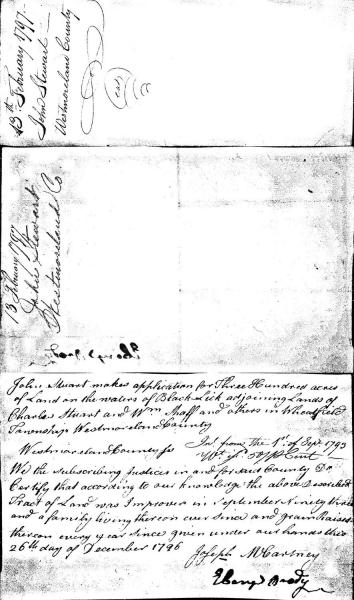 13th February 1797
John Stewart
Westmoreland County
13 February 1797
John Stewart
Westmoreland Co
John Stuart makes application for Three Hundred acres
of Land on the waters of Black Lick adjoining Lands of
Charles Stuart and Wm and others in Wheatfield
Township Westmoreland County
Int. from the 1st of Sept. 1793
Westmoreland County ss
We the Subscribing Justices in and for said County Do
Certify that according to our knowledge the above Described
Tract of Land was Improven in September Ninety three
and a family living thereon ever since and grain Raised
thereon every year since given under our hands this
26th day of December 1796
Joseph McCartney
Ebenr Brady